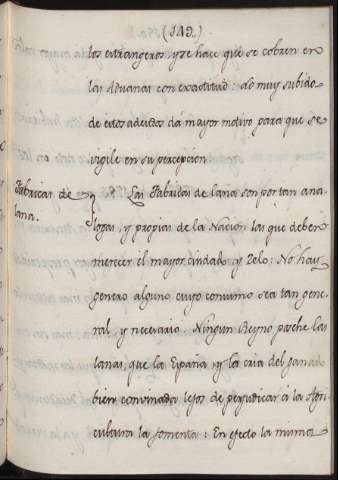 (149.)
los estrangeros, y se hace que se cobren en
las Aduanas con exactitud: lo muy subido
de estos adeudos dá mayor motivo para que se
vigile en su percepcion
Fabricas de
lana.
Las Fabricas de lana son por tan ana-
logas, y propias de la Nacion las que deben
merecer el mayor cuidado, y Zelo: No hay
genero alguno cuyo consumo sea tan gene-
ral, y necesario. Ningun Reyno posehe las
lanas, que la España, y la cria del ganado
bien convinada lejos de perjudicar á la Agri-
cultura la fomenta: En efecto la misma